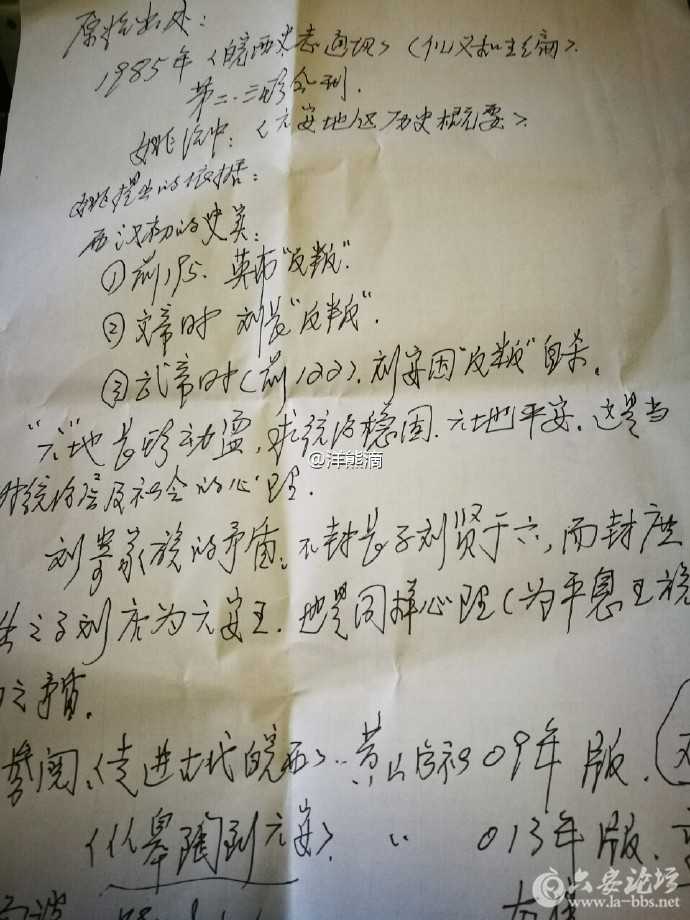 原始出处：
1985年《皖西史志通讯》（
第二、三期合刊.
姚治中：《六安地区历史概要》.
姚提出的依据：
西汉初的史实：
①前195. 英布"反叛".
②文帝时 刘长"反叛".
③武帝时（前122）. 刘安因"反叛"自杀。
"六"地长期动盪, 求统治稳固. 六地平安. 这是当
时统治层及社会的心理.
@洋熊滴
刘寄家族的矛盾。不封长子刘贤于六, 而封庶
生之子刘庆为六安王. 也是同样心理（为平息王族
之矛盾.
参阅.《走进古代皖西》. 黄山书社09年版.
《从皋陶到六安》. 〃 013年版.
六安论坛
www.la-bbs.net